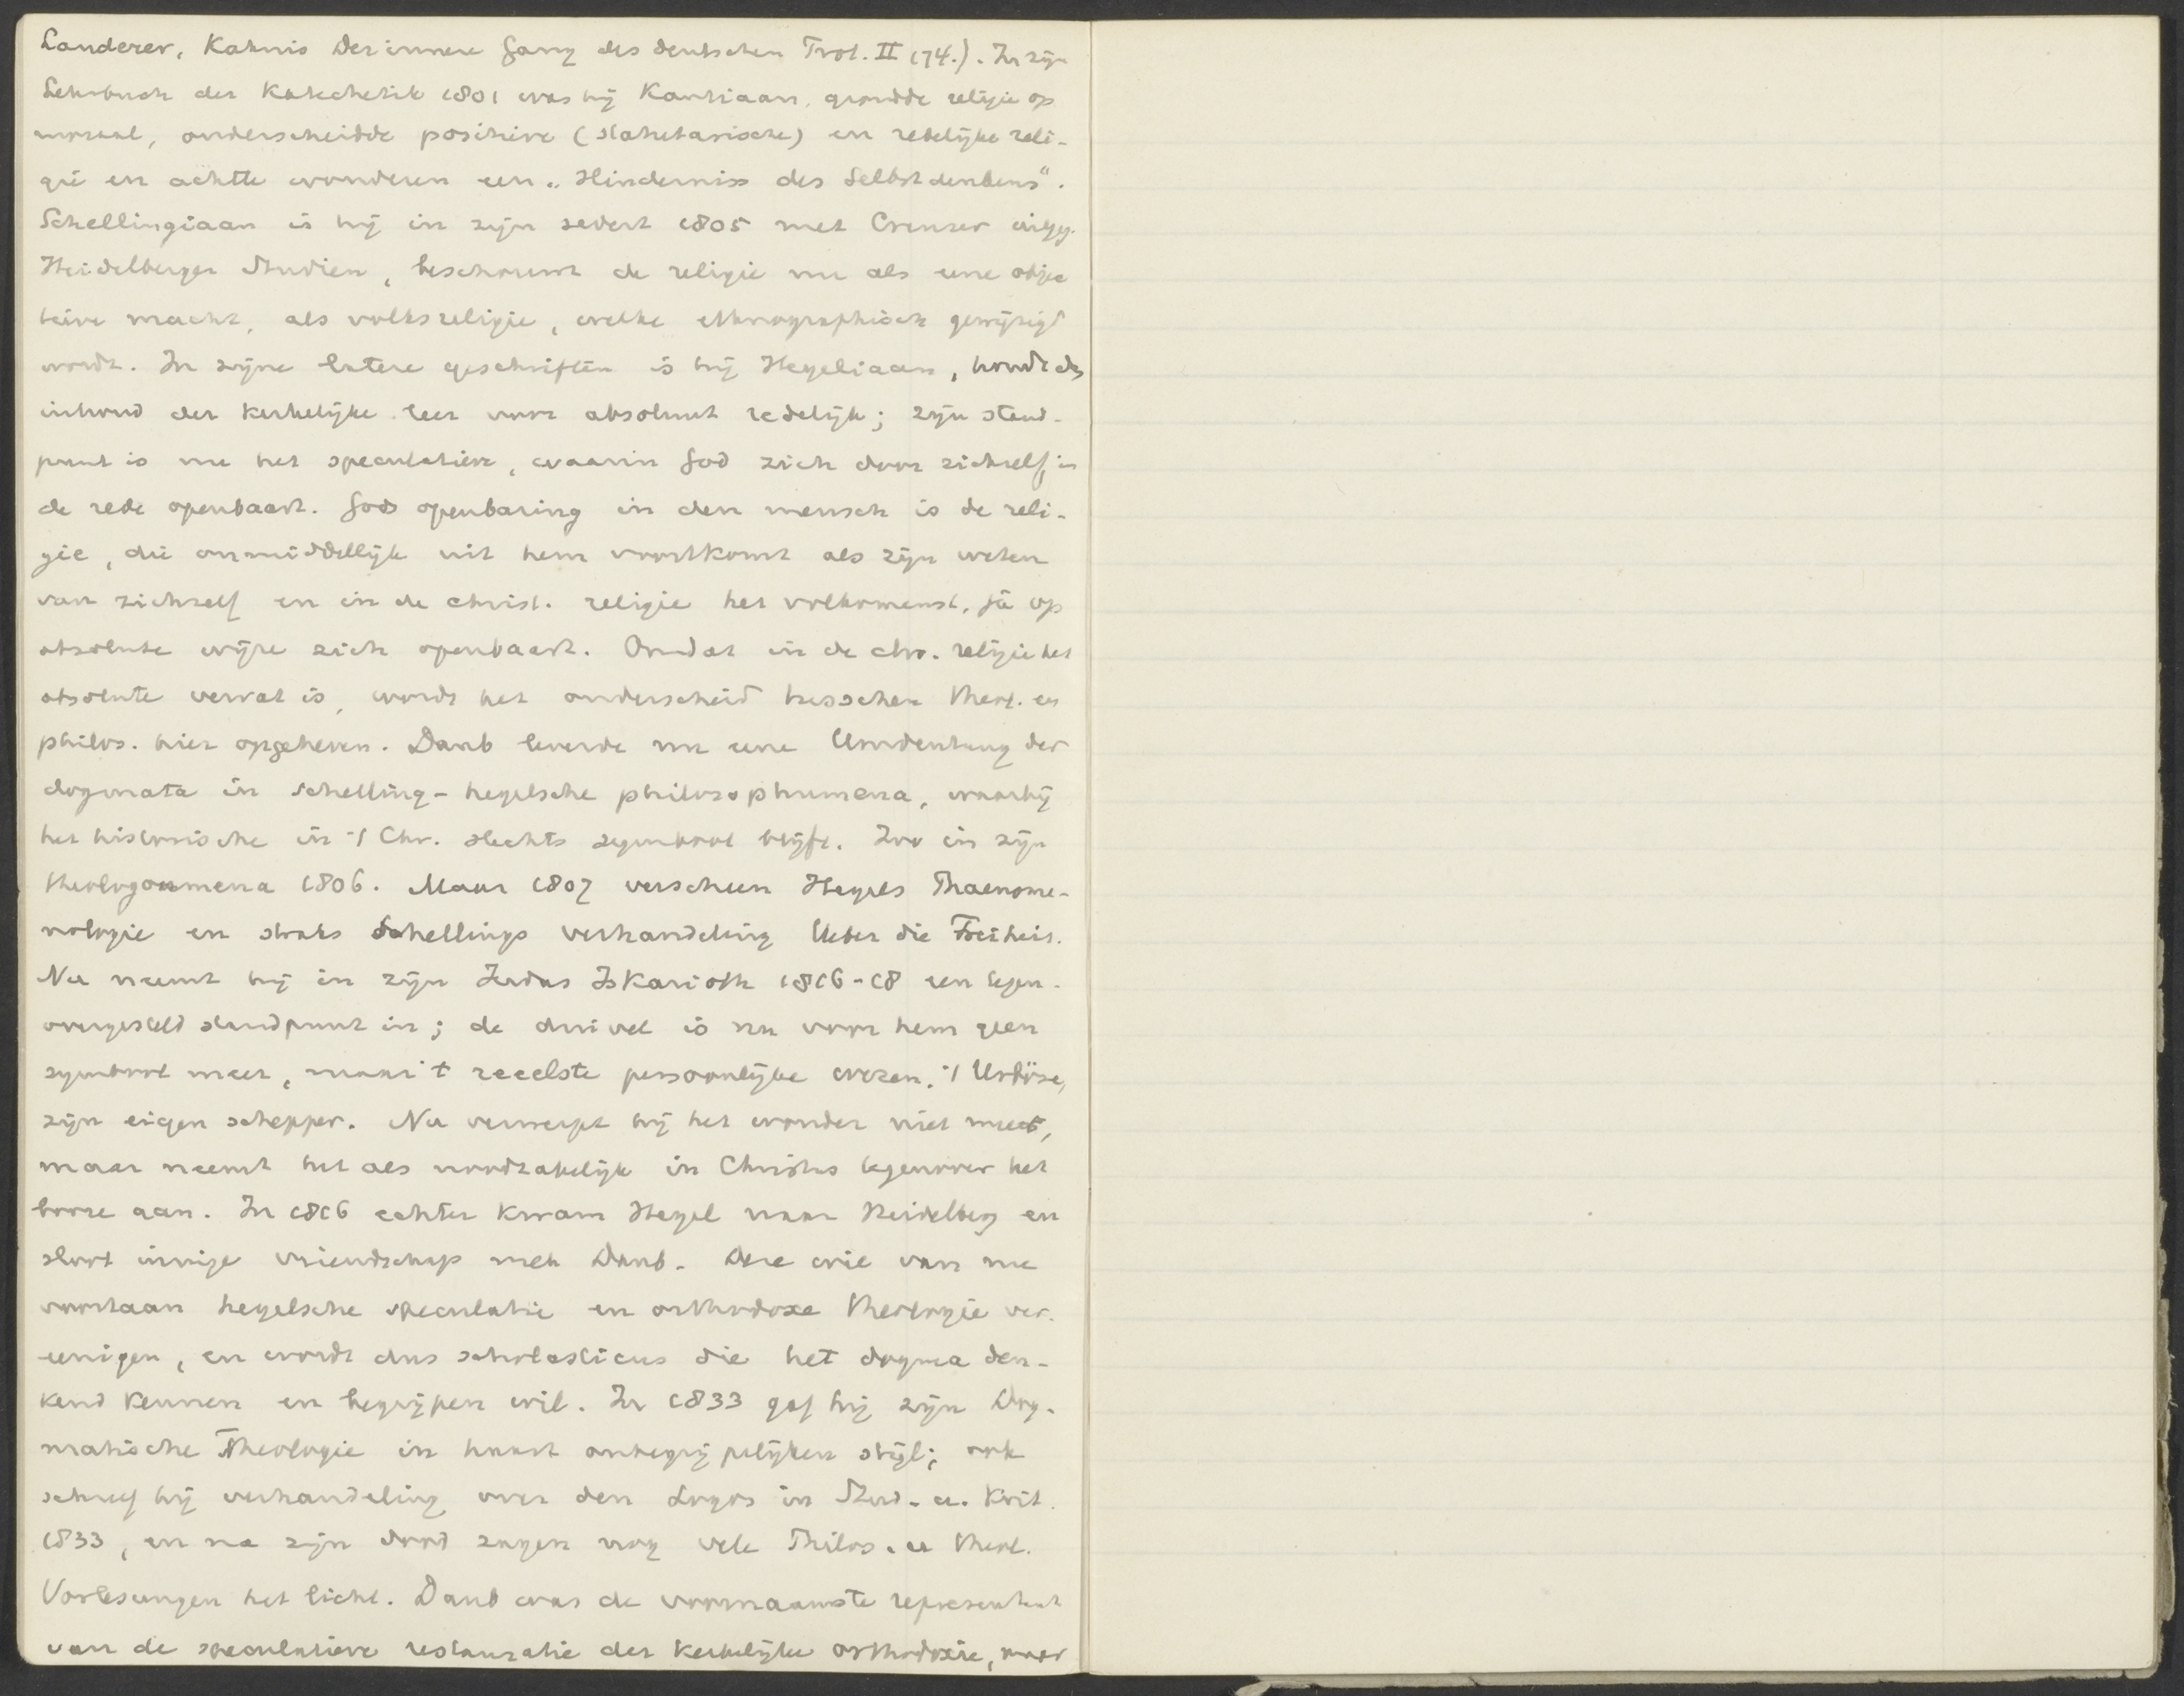 Landerer, Kahnis Der innere Gang des deutschen Prot. II 174.). In zijn
Lehrbuch der Katechetik 1801 was hij Kantiaan, grondde religie op
moraal, onderscheidde positieve (statutarische) en redelijke reli-
gie en achtte wonderen een „Hinderniss des Selbstdenkens".
Schellingiaan is hij in zijn sedert 1805 met Creuzer uitgeg.
Heidelberger Studien, beschouwt de religie nu als eene objec
tieve macht, als volksreligie, welke ethnographisch gewijzigd
wordt. In zijne latere geschriften is hij Hegeliaan, houdt den
inhoud der kerkelijke leer voor absoluut redelijk; zijn stand-
punt is nu het speculatieve, waarin God zich door zichzelf, in
de rede openbaart. Gods openbaring in den mensch is de reli-
gie, die onmiddellijk uit hem voortkomt als zijn weten
van zichzelf en in de christ. religie het volkomenst, ja op
absolute wijze zich openbaart. Omdat in de chr. religie het
absolute vervat is, wordt het onderscheid tusschen theol. en
philos. hier opgeheven. Daub leverde nu eene Umdeutung der
dogmata in schelling-hegelsche philosophumena, waarbij
het historische in 't Chr. slechts symbool blijft. Zoo in zijn
Theologoumena 1806. Maar 1807 verscheen Hegels Phaenome-
nologie en straks Schellings verhandeling Ueber die Freiheit.
Nu neemt hij in zijn Judas Iskarioth 1816-18 een tegen-
overgesteld standpunt in; de duivel is nu voor hem geen
symbool meer, maar 't reeelste persoonlijke wezen, 't Urböse,
zijn eigen schepper. Nu verwerpt hij het wonder niet meer,
maar neemt het als noodzakelijk in Christus tegenover het
booze aan. In 1816 echter kwam Hegel naar Heidelberg en
sloot innige vriendschap met Daub. Deze wil van nu
voortaan hegelsche speculatie en orthodoxe theologie ver-
eenigen, en wordt dus scholasticus die het dogma den-
kend kennen en begrijpen wil. In 1833 gaf hij zijn Dog-
matische Theologie in haast onbegrijpelijken stijl; ook
schreef hij verhandeling over den Logos in Stud. u. Krit.
1833, en na zijn dood zagen nog vele Philos. u Theol.
Vorlesungen het licht. Daub was de voornaamste representant
van de speculatieve restauratie der kerkelijke orthodoxie, maar